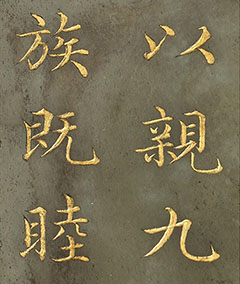 以親九
族既睦